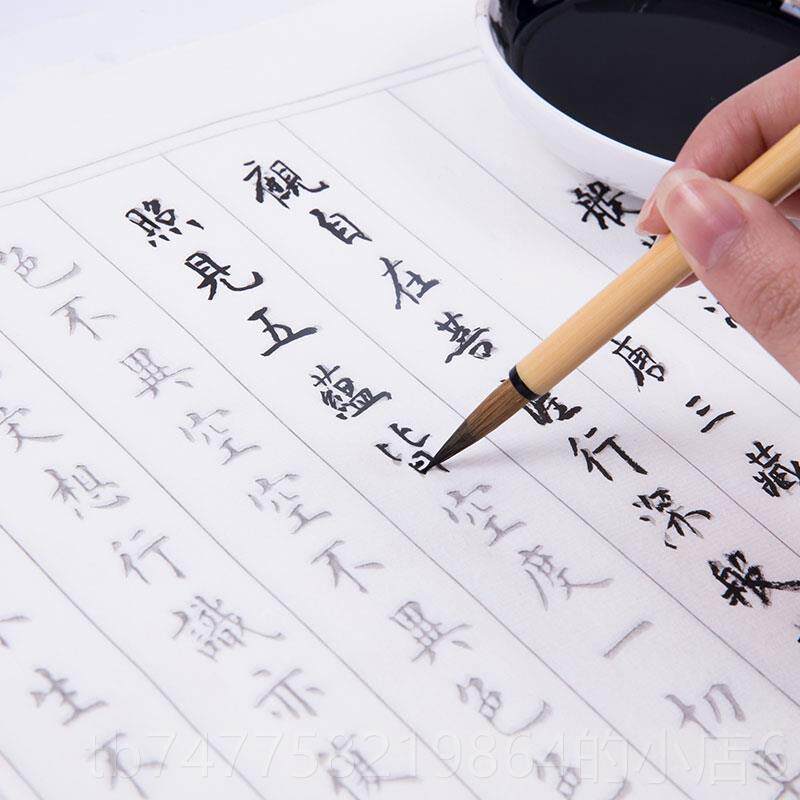 般
唐三藏
觀自在菩薩行深般
照見五蘊皆空度一切
色不異空空不異色色
受想行識亦復
生不
tb7477758219864的小店6